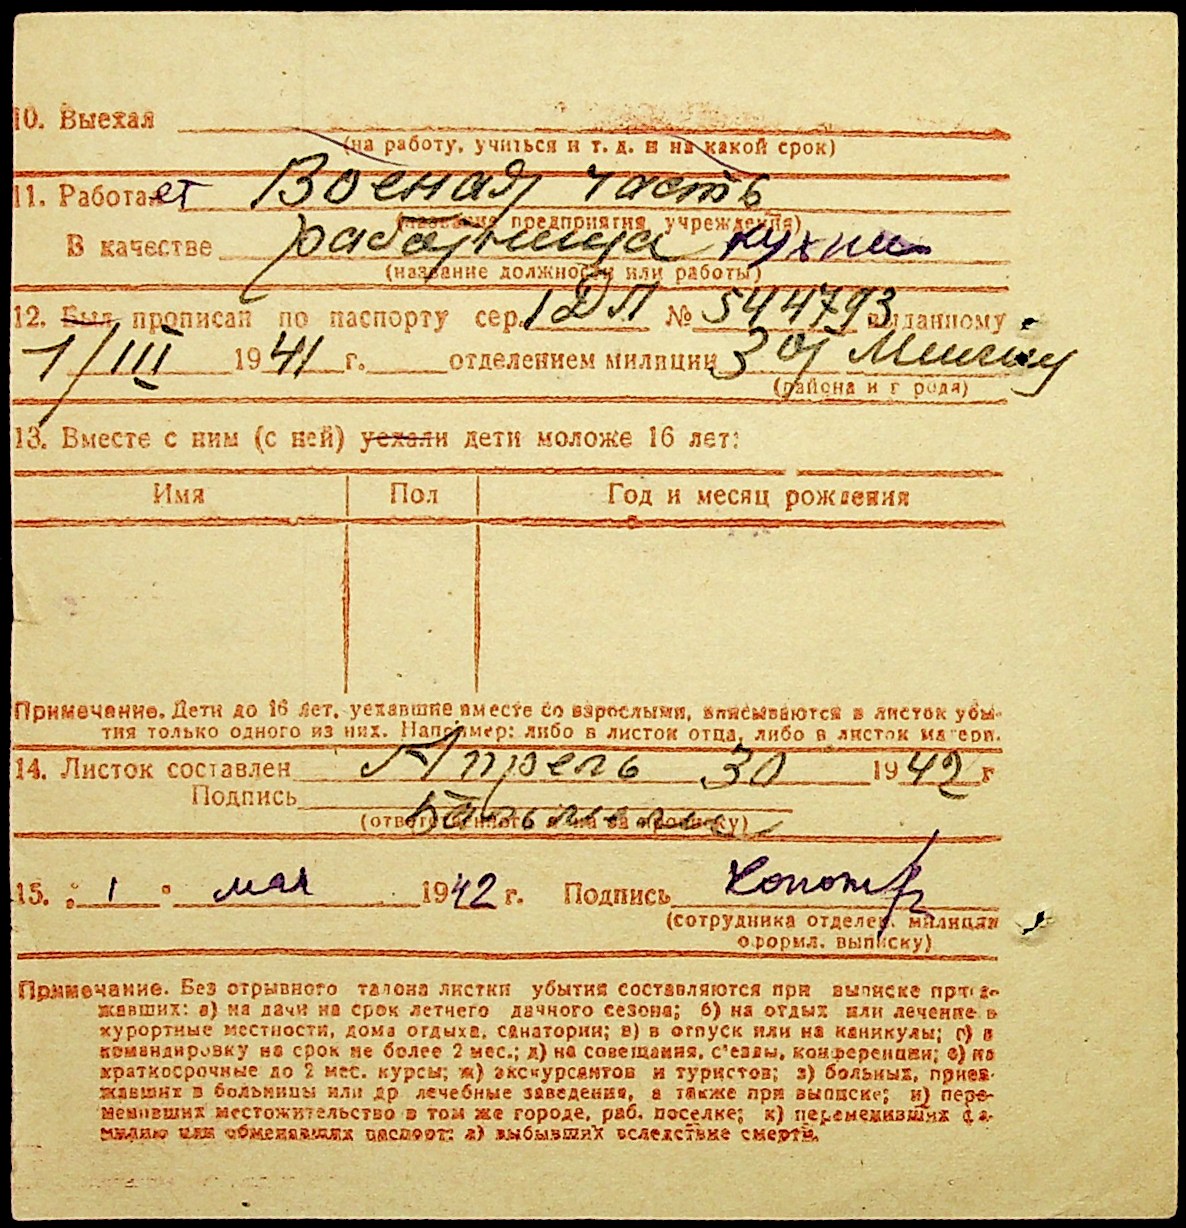 10. Выехал
(на работу, учиться и т. д. и на какой срок)
11. Работает Военая часть
(название предприятия учреждения)
В качестве работница кухни
(название должности или работы)
12. Был прописан по паспорту сер. 1 ДЛ № 544793 выданному
1/III 1941 г. отделением милиции 3 от
(района и г рода)
13. Вместе с ним (с ней) уехали дети моложе 16 лет:
Имя Пол Год и месяц рождения
Примечание. Дети до 16 лет, уехавшие вместе со взрослыми, вписываются в листок убы-
тия только одного из них. Например: либо в листок отца, либо в листок матери.
14. Листок составлен Апрель 30 1942 г
Подпись
(ответственного за прописку)
15. " 1 " мая 1942 г. Подпись
(сотрудника отделен. милиции
оформл. выписку)
Примечание. Без отрывного талона листки убытия составляются при выписке приез-
жавших: а) на дачи на срок летнего дачного сезона; б) на отдых или лечение в
курортные местности, дома отдыха, санатории; в) в отпуск или на каникулы; г) в
командировку на срок не более 2 мес.; д) на совещания, с'езды, конференции; е) на
краткосрочные до 2 мес. курсы; ж) экскурсантов и туристов; з) больных, приез-
жавших в больницы или др лечебные заведения, а также при выписке; и) пере-
менивших местожительство в том же городе, раб. поселке; к) переменивших фа-
милию или обменявших паспорт: л) выбывших вследствие смерти.